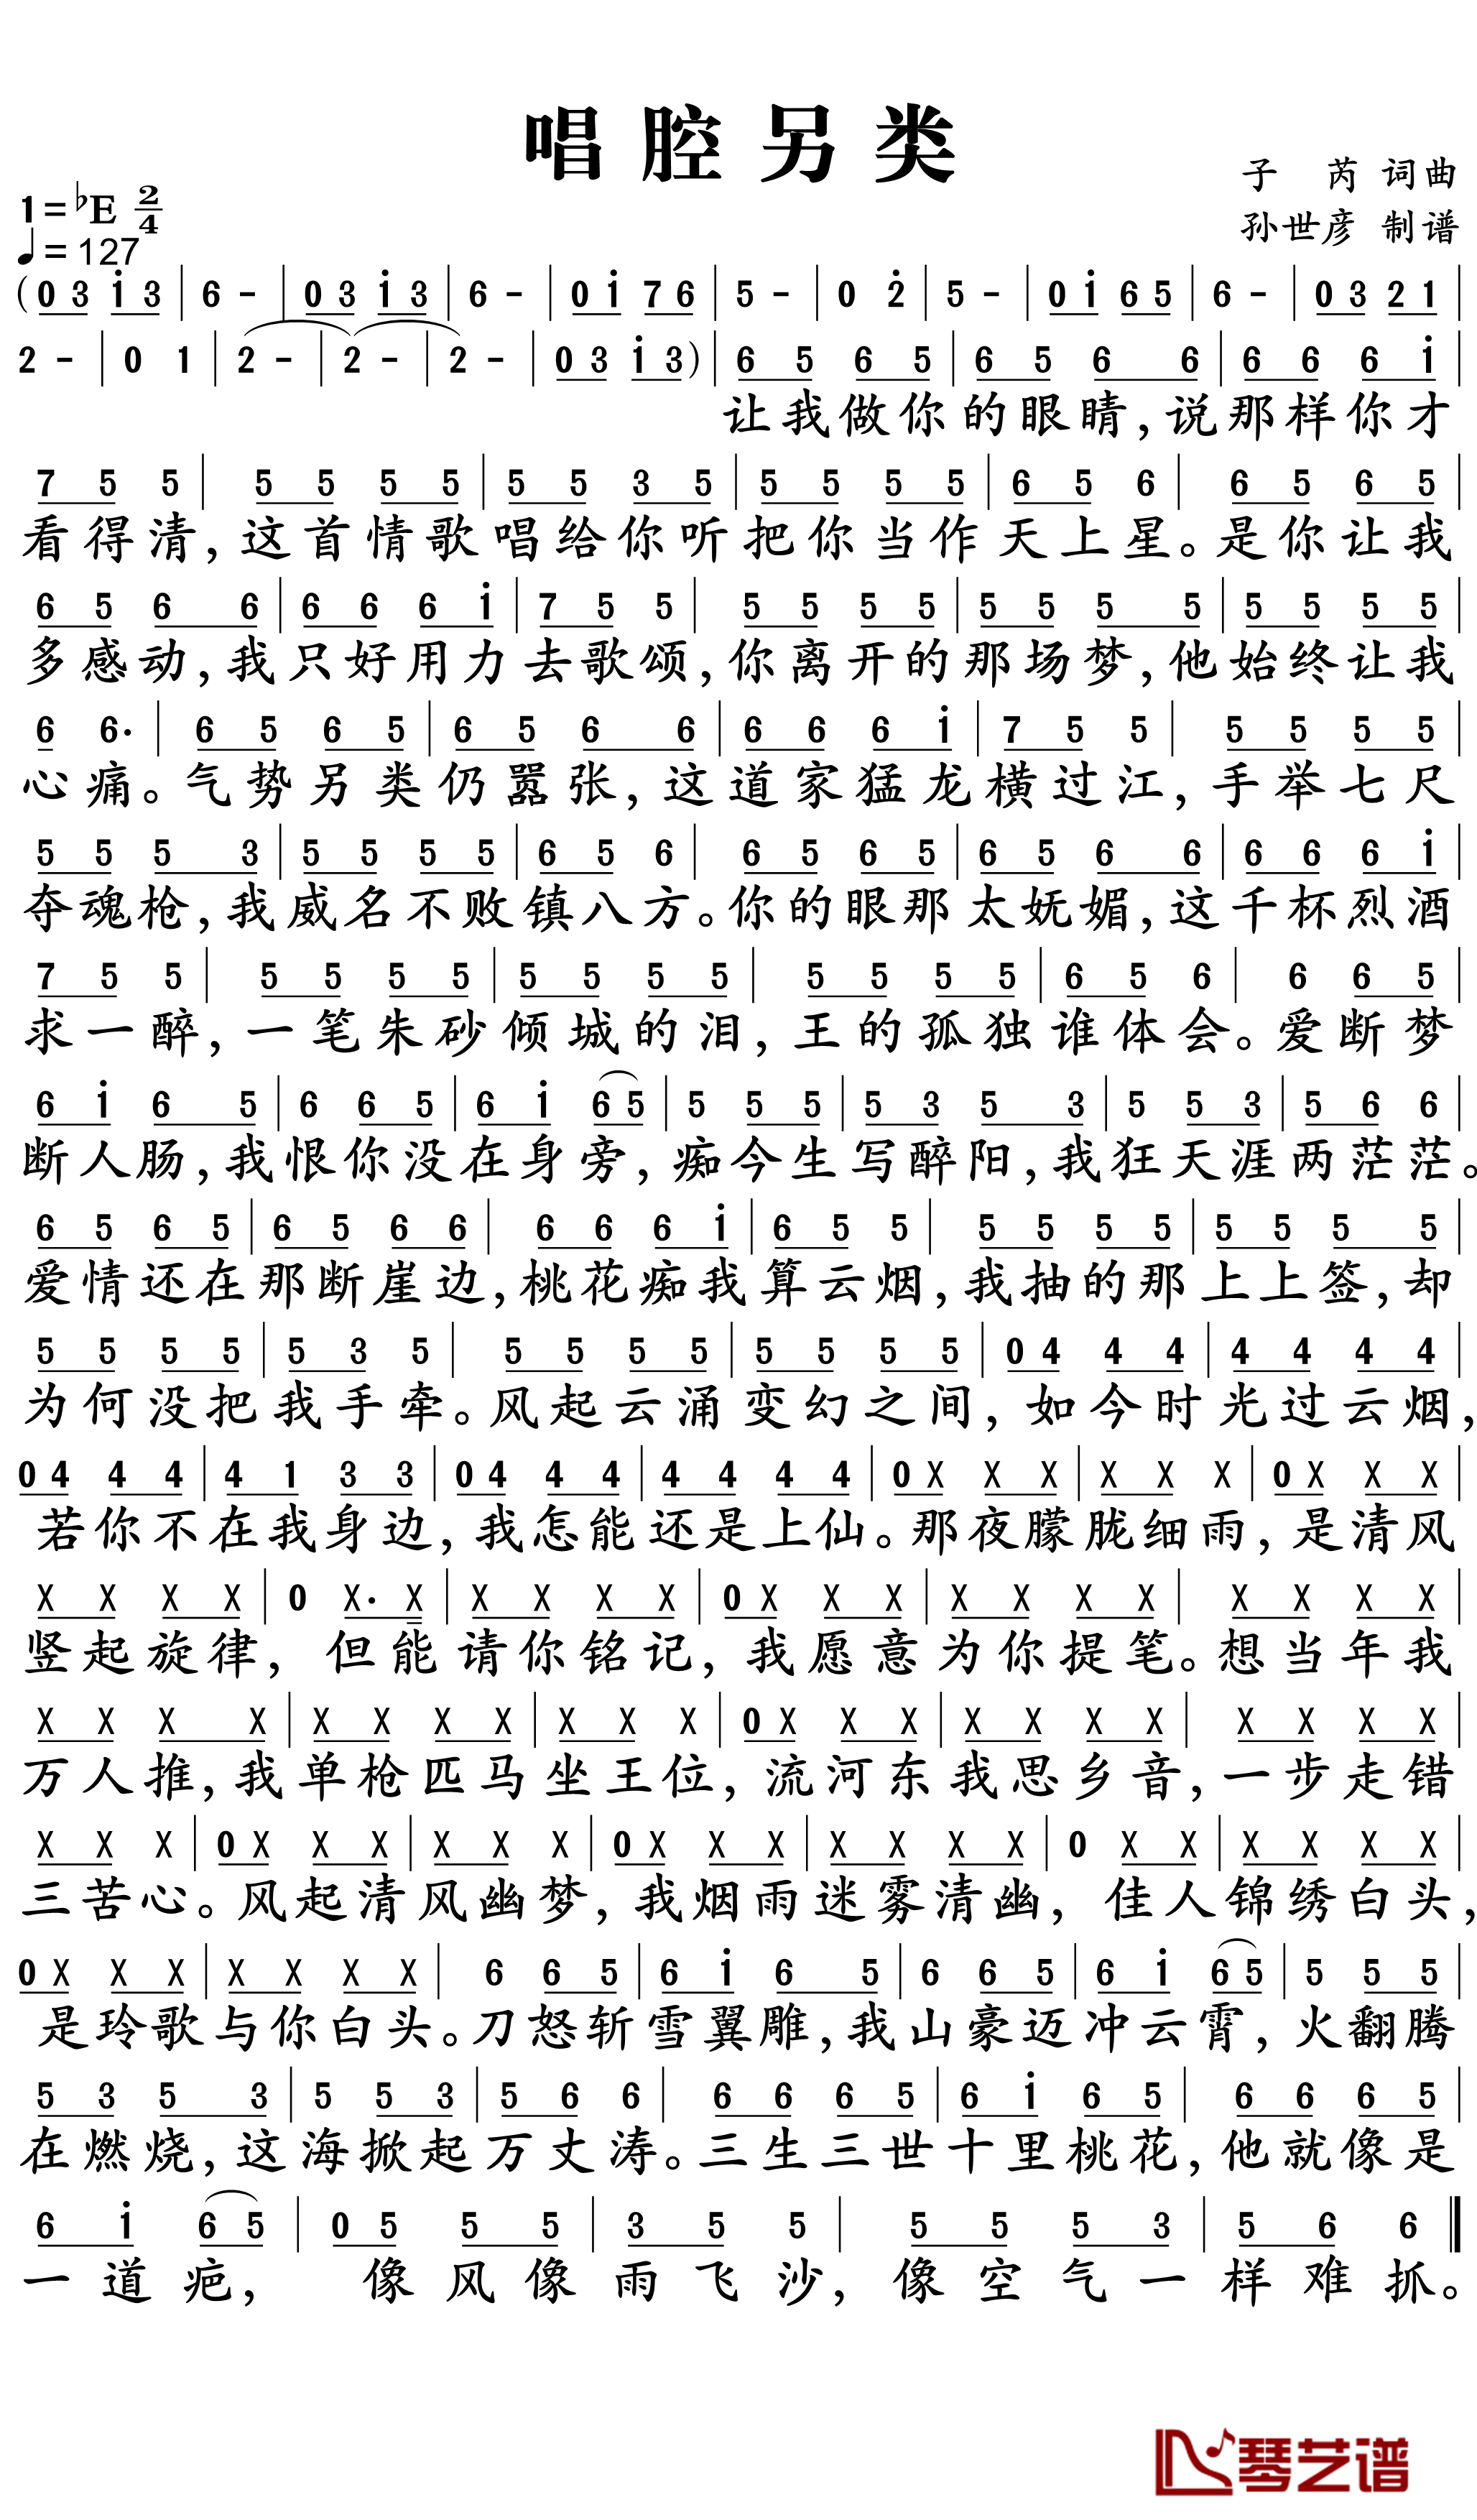 唱腔另类
子 芮 词曲
孙世彦 制谱
1=♭E 2/4
♩=127
(0 3 i 3 | 6 - | 0 3 i 3 | 6 - | 0 i 7 6 | 5 - | 0 2 | 5 - | 0 i 6 5 | 6 - | 0 3 2 1 |
2 - | 0 1 | 2 - | 2 - | 2 - | 0 3 i 3) | 6 5 6 5 | 6 5 6 6 | 6 6 6 i |
让我做你的眼睛,说那样你才
7 5 5 | 5 5 5 5 | 5 5 3 5 | 5 5 5 5 | 6 5 6 | 6 5 6 5 |
看得清,这首情歌唱给你听把你当作天上星。是你让我
6 5 6 6 | 6 6 6 i | 7 5 5 | 5 5 5 5 | 5 5 5 5 | 5 5 5 5 |
多感动,我只好用力去歌颂,你离开的那场梦,他始终让我
6 6· | 6 5 6 5 | 6 5 6 6 | 6 6 6 i | 7 5 5 | 5 5 5 5 |
心痛。气势另类仍嚣张,这道家猛龙横过江,手举七尺
5 5 5 3 | 5 5 5 5 | 6 5 6 | 6 5 6 5 | 6 5 6 6 | 6 6 6 i |
夺魂枪,我威名不败镇八方。你的眼那太妩媚,这千杯烈酒
7 5 5 | 5 5 5 5 | 5 5 5 5 | 5 5 5 5 | 6 5 6 | 6 6 5 |
求一醉,一笔朱砂倾城的泪,王的孤独谁体会。爱断梦
6 i 6 5 | 6 6 5 | 6 i 6 5 | 5 5 5 | 5 3 5 3 | 5 5 3 | 5 6 6 |
断人肠,我恨你没在身旁,痴今生写醉阳,我狂天涯两茫茫。
6 5 6 5 | 6 5 6 6 | 6 6 6 i | 6 5 5 | 5 5 5 5 | 5 5 5 5 |
爱情还在那断崖边,桃花痴我算云烟,我抽的那上上签,却
5 5 5 5 | 5 3 5 | 5 5 5 5 | 5 5 5 5 | 0 4 4 4 | 4 4 4 4 |
为何没把我手牵。风起云涌变幻之间,如今时光过云烟,
0 4 4 4 | 4 1 3 3 | 0 4 4 4 | 4 4 4 4 | 0 X X X | X X X | 0 X X X |
若你不在我身边,我怎能还是上仙。那夜朦胧细雨,是清风
X X X X | 0 X· X | X X X X | 0 X X X | X X X X | X X X X |
竖起旋律,但能请你铭记,我愿意为你提笔。想当年我
X X X X | X X X X | X X X | 0 X X X | X X X X | X X X X |
万人推,我单枪匹马坐王位,流河东我思乡音,一步走错
X X X | 0 X X X | X X X | 0 X X X | X X X X | 0 X X | X X X X |
三苦心。风起清风幽梦,我烟雨迷雾清幽,佳人锦绣白头,
0 X X X | X X X X | 6 6 5 | 6 i 6 5 | 6 6 5 | 6 i 6 5 | 5 5 5 |
是玲歌与你白头。刀怒斩雪翼雕,我山豪迈冲云霄,火翻腾
5 3 5 3 | 5 5 3 | 5 6 6 | 6 6 6 5 | 6 i 6 5 | 6 6 6 5 |
在燃烧,这海掀起万丈涛。三生三世十里桃花,他就像是
6 i 6 5 | 0 5 5 5 | 3 5 5 | 5 5 5 3 | 5 6 6 ‖
一道疤,像风像雨飞沙,像空气一样难抓。
琴艺谱